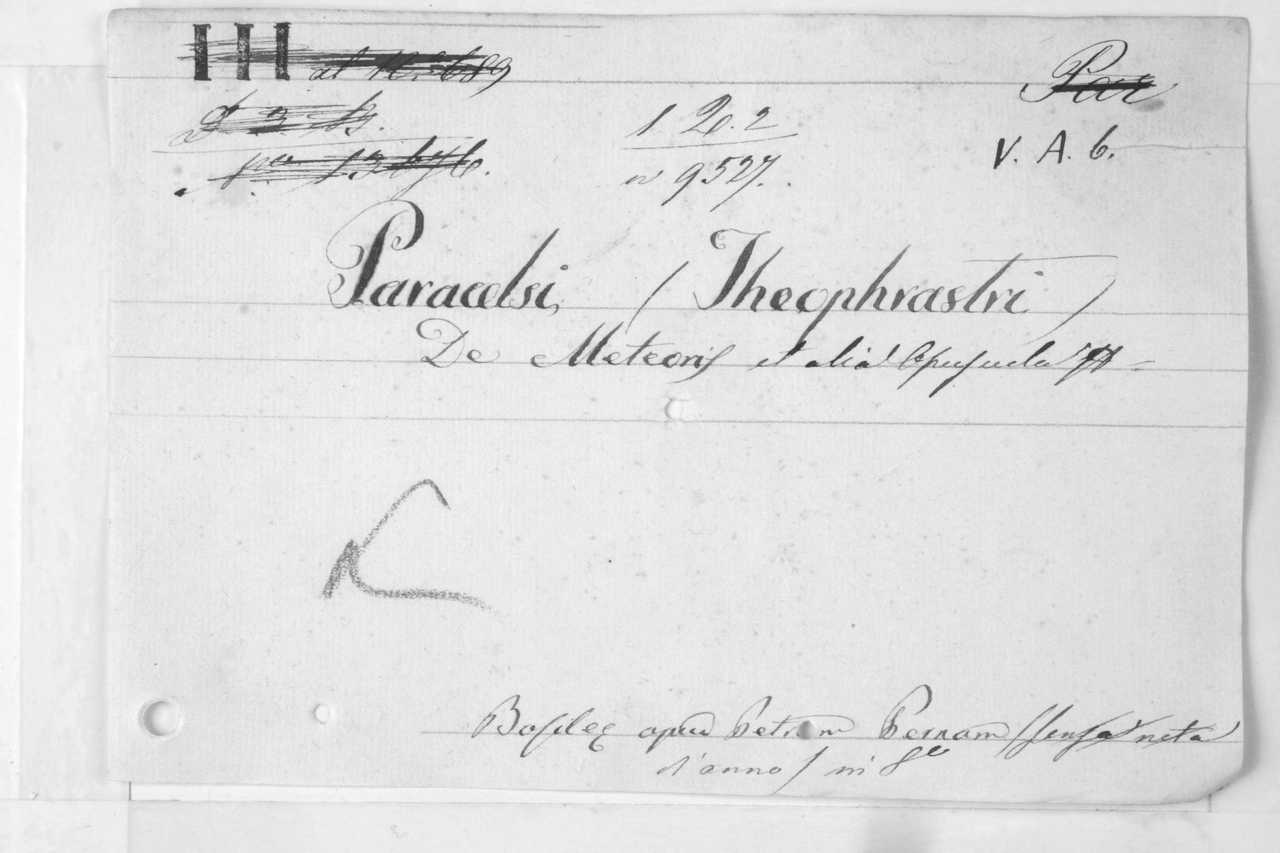 III
Par
1 20. 2
n 9527.
V. A. 6.
Paracelsi, (Theophrastri)
De Meteoris et alia Opuscula
Basileę apud Petrum Pernam (senza nota
d'anno) in 8º